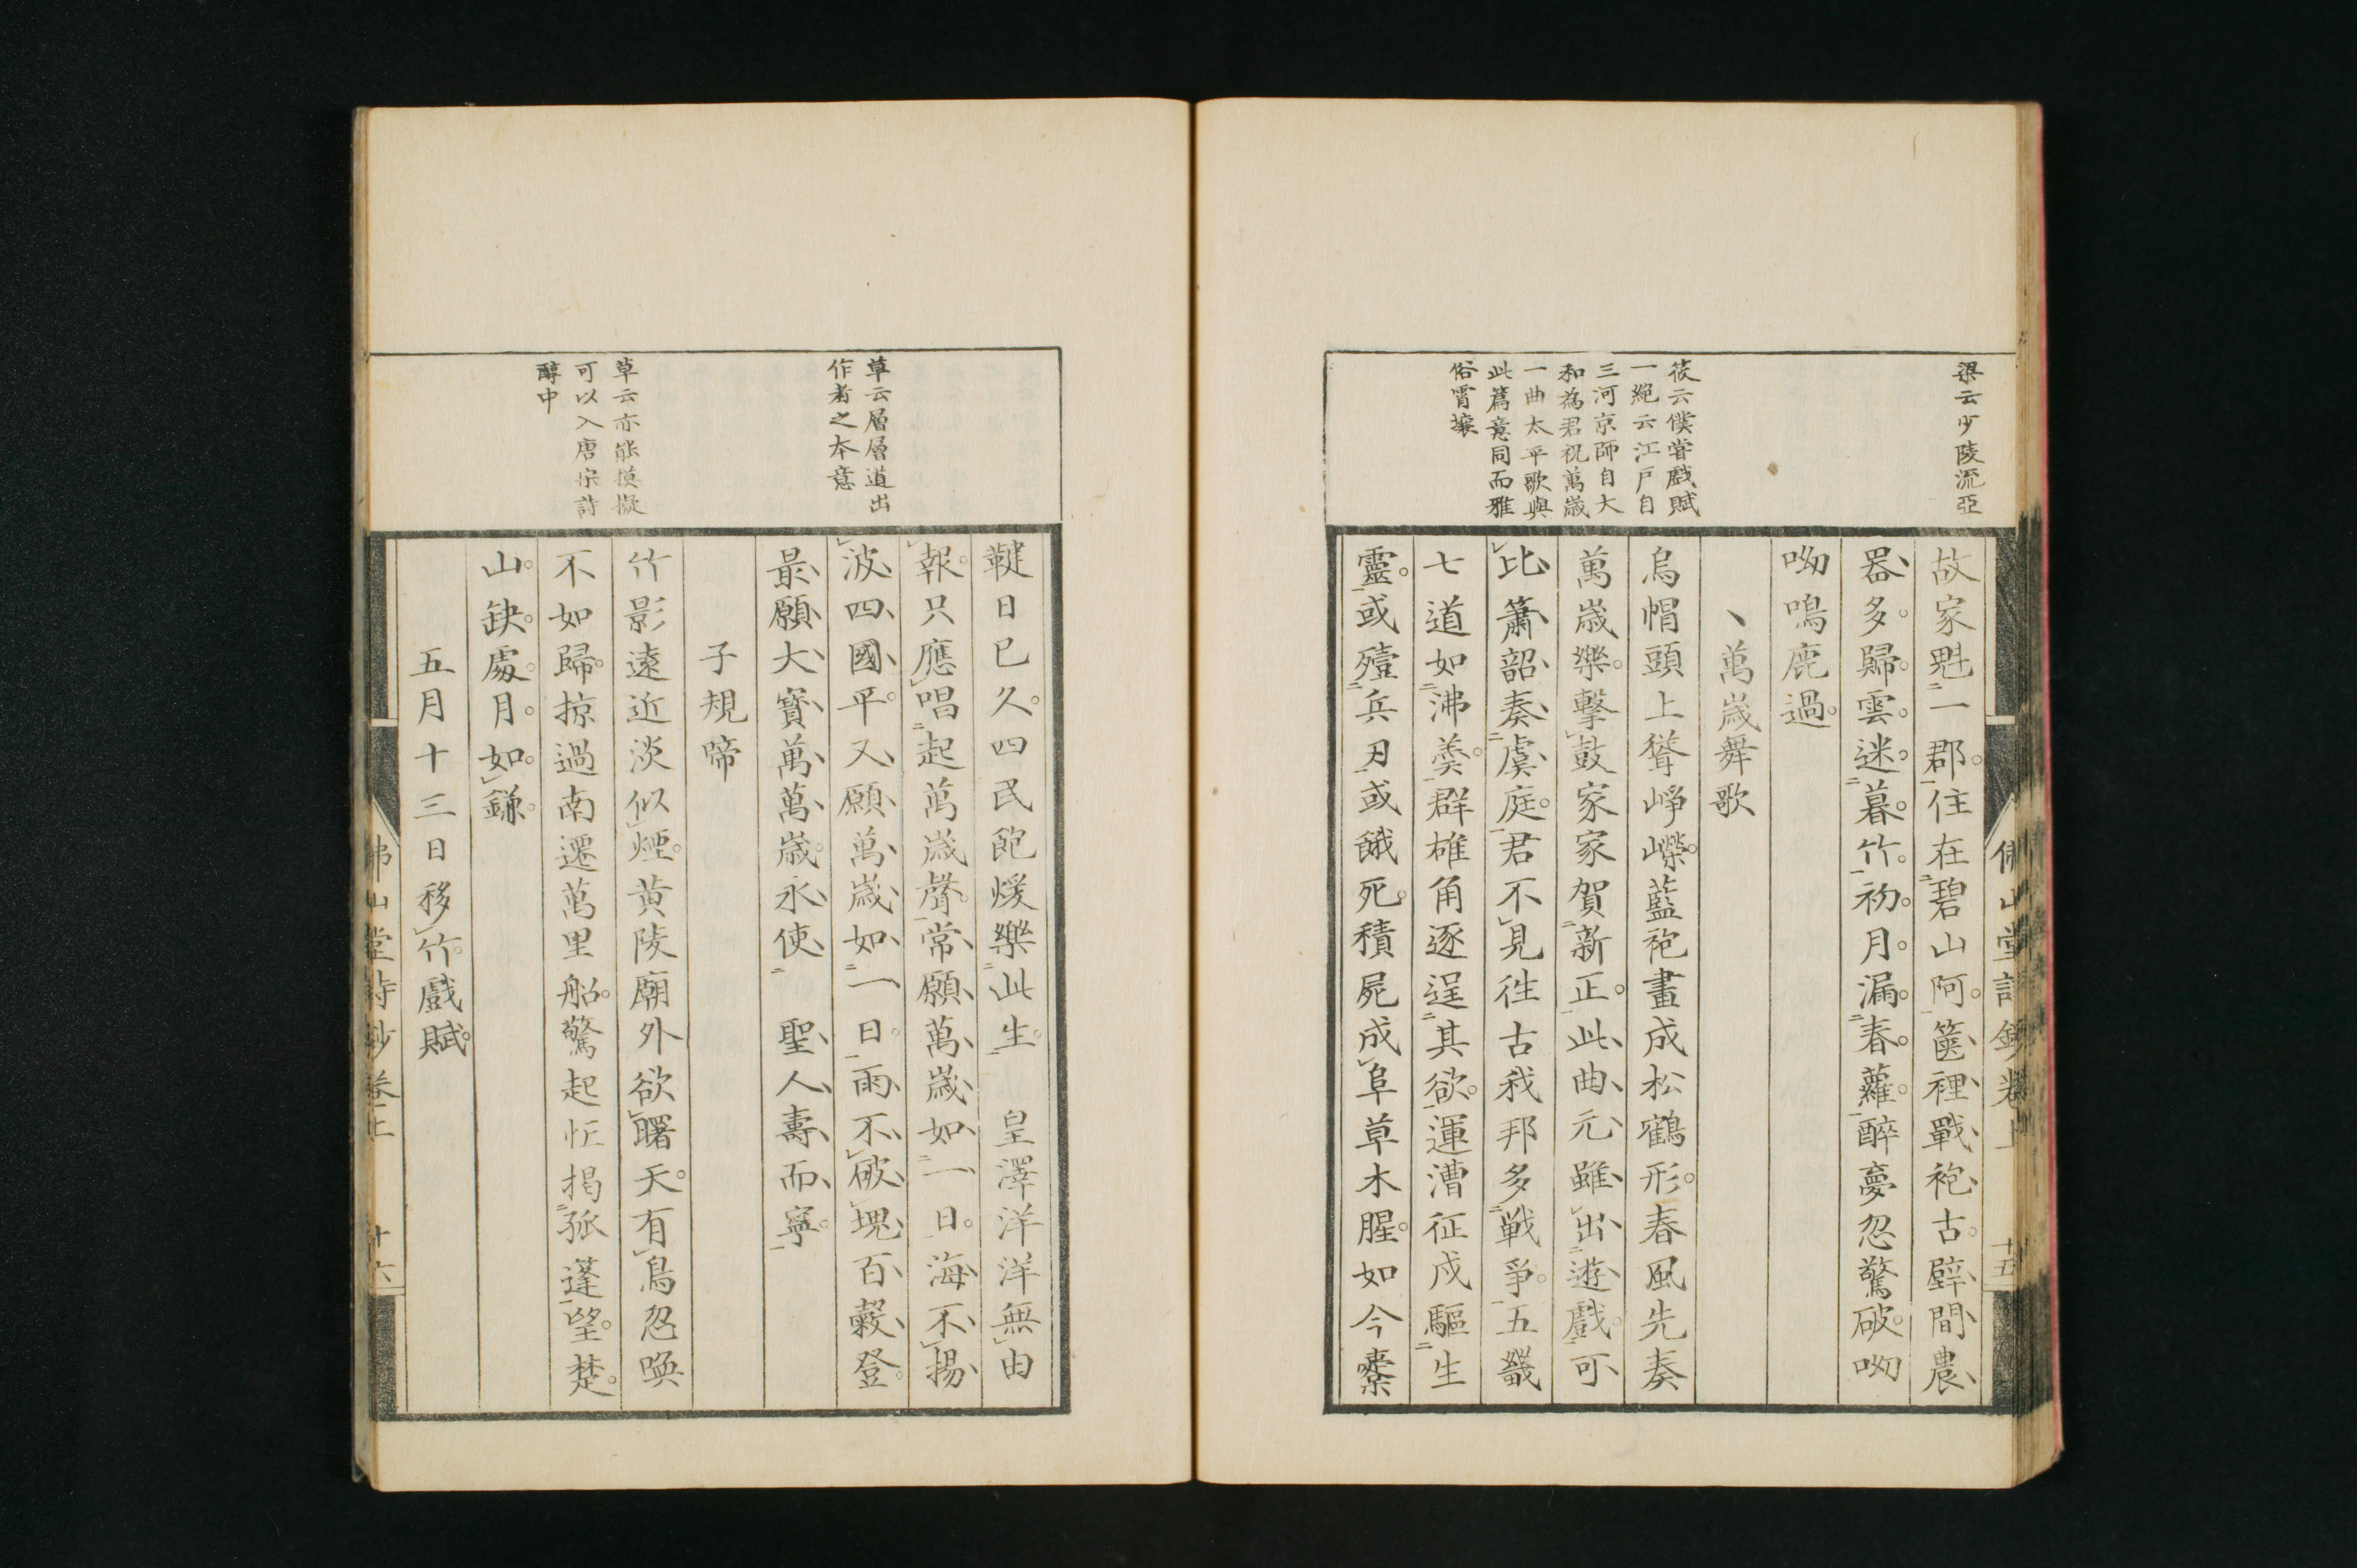 梁云少陵流亞
筱云僕嘗戲賦
一絕云江戶自
三河京師自大
和為君祝萬歲
一曲太平歌與
此篇意同而雅
俗霄壤
故家魁一郡住在碧山阿篋裡戰袍古壁間農
器多歸雲迷暮竹初月漏春蘿醉夢忽驚破呦
呦鳴鹿過
萬歲舞歌
烏帽頭上聳崢嶸藍袍畫成松鶴形春風先奏
萬歲樂擊鼓家家賀新正此曲元雖出遊戲可
比簫韶奏虞庭君不見徃古我邦多戰爭五畿
七道如沸羮群雄角逐逞其欲運漕征戍驅生
靈或殪兵刃或餓死積屍成阜草木腥如今櫜
佛山堂詩鈔卷上
十五
草云層層道出
作者之本意
草云亦能摸擬
可以入唐宋詩
醇中
鞬日已久四民飽煖樂此生 皇澤洋洋無由
報只應唱起萬歲聲常願萬歲如一日海不揚
波四國平又願萬歲如一日雨不破塊百穀登
最願大寶萬萬歲永使 聖人壽而寧
子規啼
竹影遠近淡似煙黃陵廟外欲曙天有鳥忽喚
不如歸掠過南遷萬里船驚起忙揭孤蓬望楚
山缺處月如鎌
五月十三日移竹戲賦
佛山堂詩鈔卷上
十六